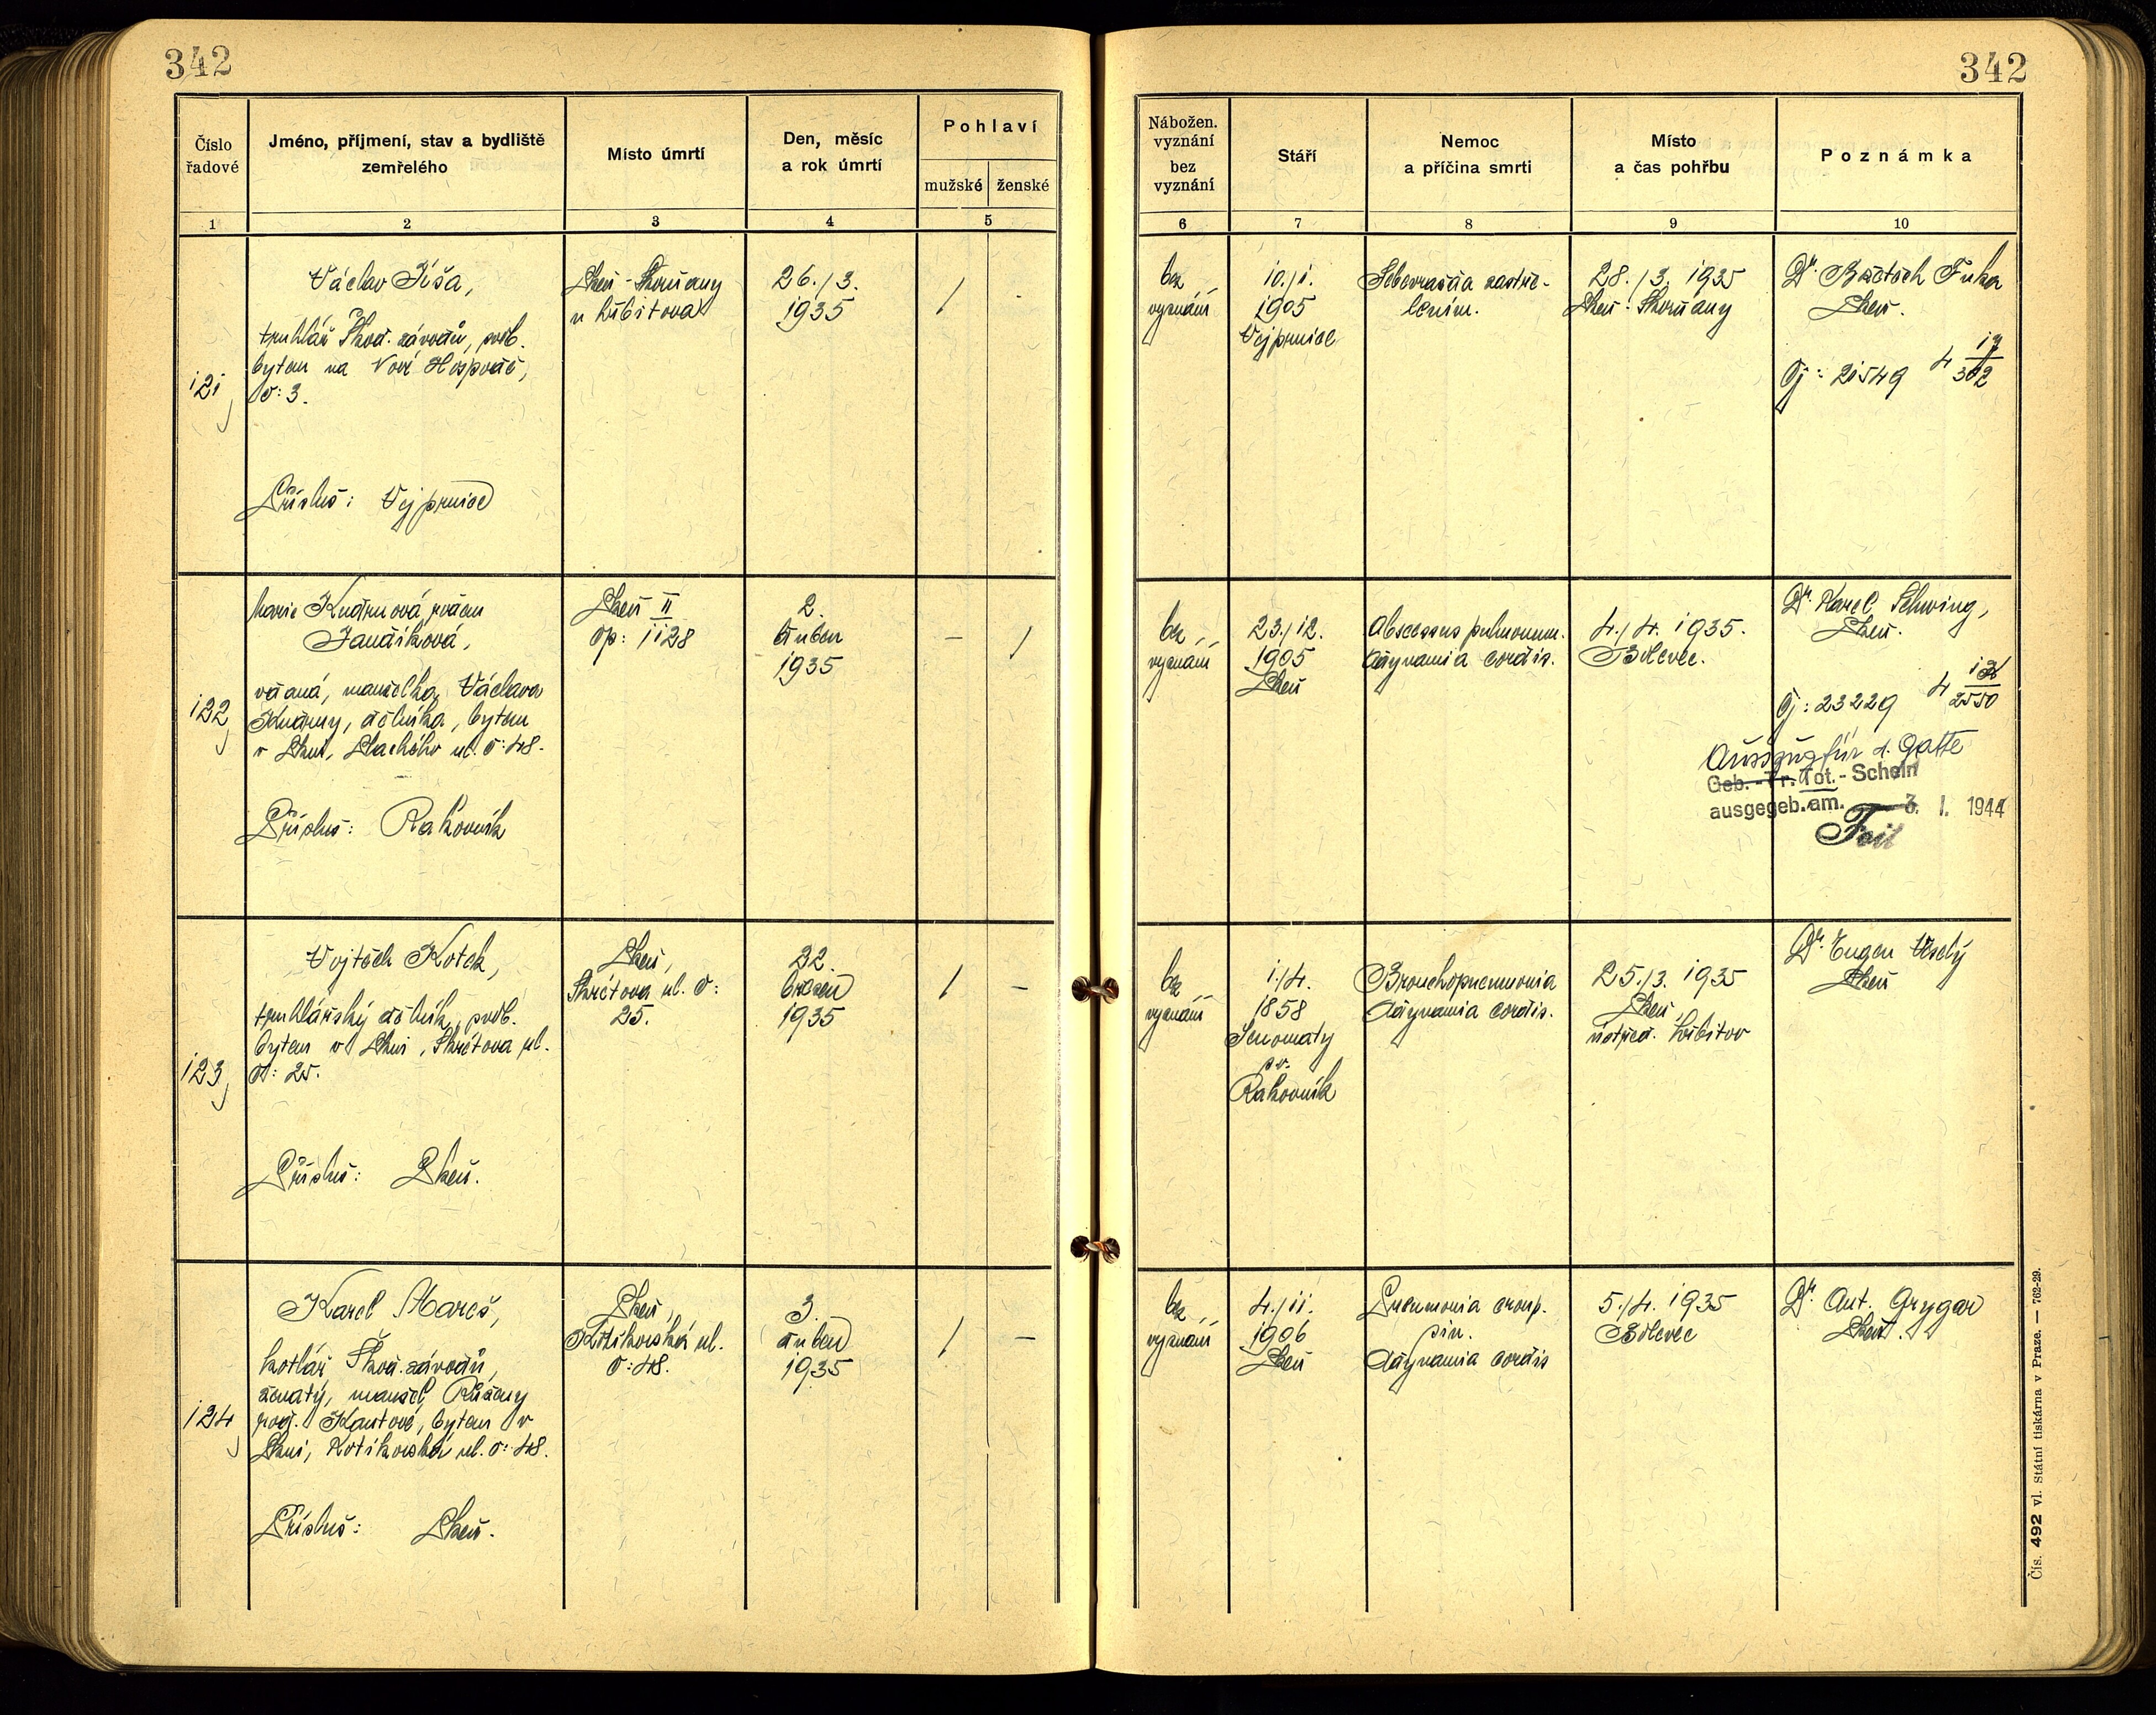 342
342
Číslo
řadové
Jméno, příjmení, stav a bydliště
zemřelého
Místo úmrtí
Den, měsíc
a rok úmrtí
Pohlaví
mužské
ženské
1
2
3
4
5
Nábožen.
vyznání
bez
vyznání
Stáří
Nemoc
a příčina smrti
Místo
a čas pohřbu
Poznámka
6
7
8
9
10
121
Václav Jíša,
truhlář Škod. závodů, svob.
bytem na Nové Hospodě,
č: 3.
Přísluš: Vejprnice
Plzeň - Skvrňany
u hřbitova
26./3.
1935
/
bez
vyznání
10./1.
1905
Vejprnice
Sebevražda zastře-
lením.
28./3. 1935
Plzeň - Skvrňany
Dr. Fuka
Plzeň.
čj: 21549 4
122
Marie Kudrnová, rozená
Jandíková,
vdaná, manželka Václava
Kudrny, dělníka, bytem
v Plzni, ul. č: 48.
Přísluš: Rakovník
Plzeň II
čp: 1128
2.
duben
1935
–
/
bez
vyznání
23./12.
1905
Plzeň
Abscessus pulmonum.
Adynamia cordis.
4./4. 1935.
Bolevec.
Dr. Karel Schwing,
Plzeň.
čj: 23229 4 12/2550
Auszug für d. Gatte
Geb.-Tr.-Tot.-Schein
ausgegeb. am. 3. I. 1944
123
Vojtěch Kotek,
truhlářský dělník, svob.
bytem v Plzni, Skrétova ul.
č: 25.
Přísluš: Plzeň.
Plzeň,
Skrétova ul. č:
25.
22.
březen
1935
/
–
bez
vyznání
1./4.
1858
Senomaty
Rakovník
Bronchopneumonia
Adynamia cordis.
25./3. 1935
Plzeň,
ústřed. hřbitov
Dr. Eugen Veselý
Plzeň
124
Karel Mareš,
kotlář Škod. závodů,
ženatý, manžel Růženy
roz. bytem v
Plzni, Kotíkovská ul. č: 48.
Přísluš: Plzeň.
Plzeň,
Kotíkovská ul.
č: 48.
3.
duben
1935
/
–
bez
vyznání
4./11.
1906
Plzeň
Pneumonia croup.
sin.
Adynamia cordis
5./4. 1935
Bolevec
Dr. Ant. Grygar
Plzeň.
Čís. 492 vl. Státní tiskárna v Praze. — 762-29.